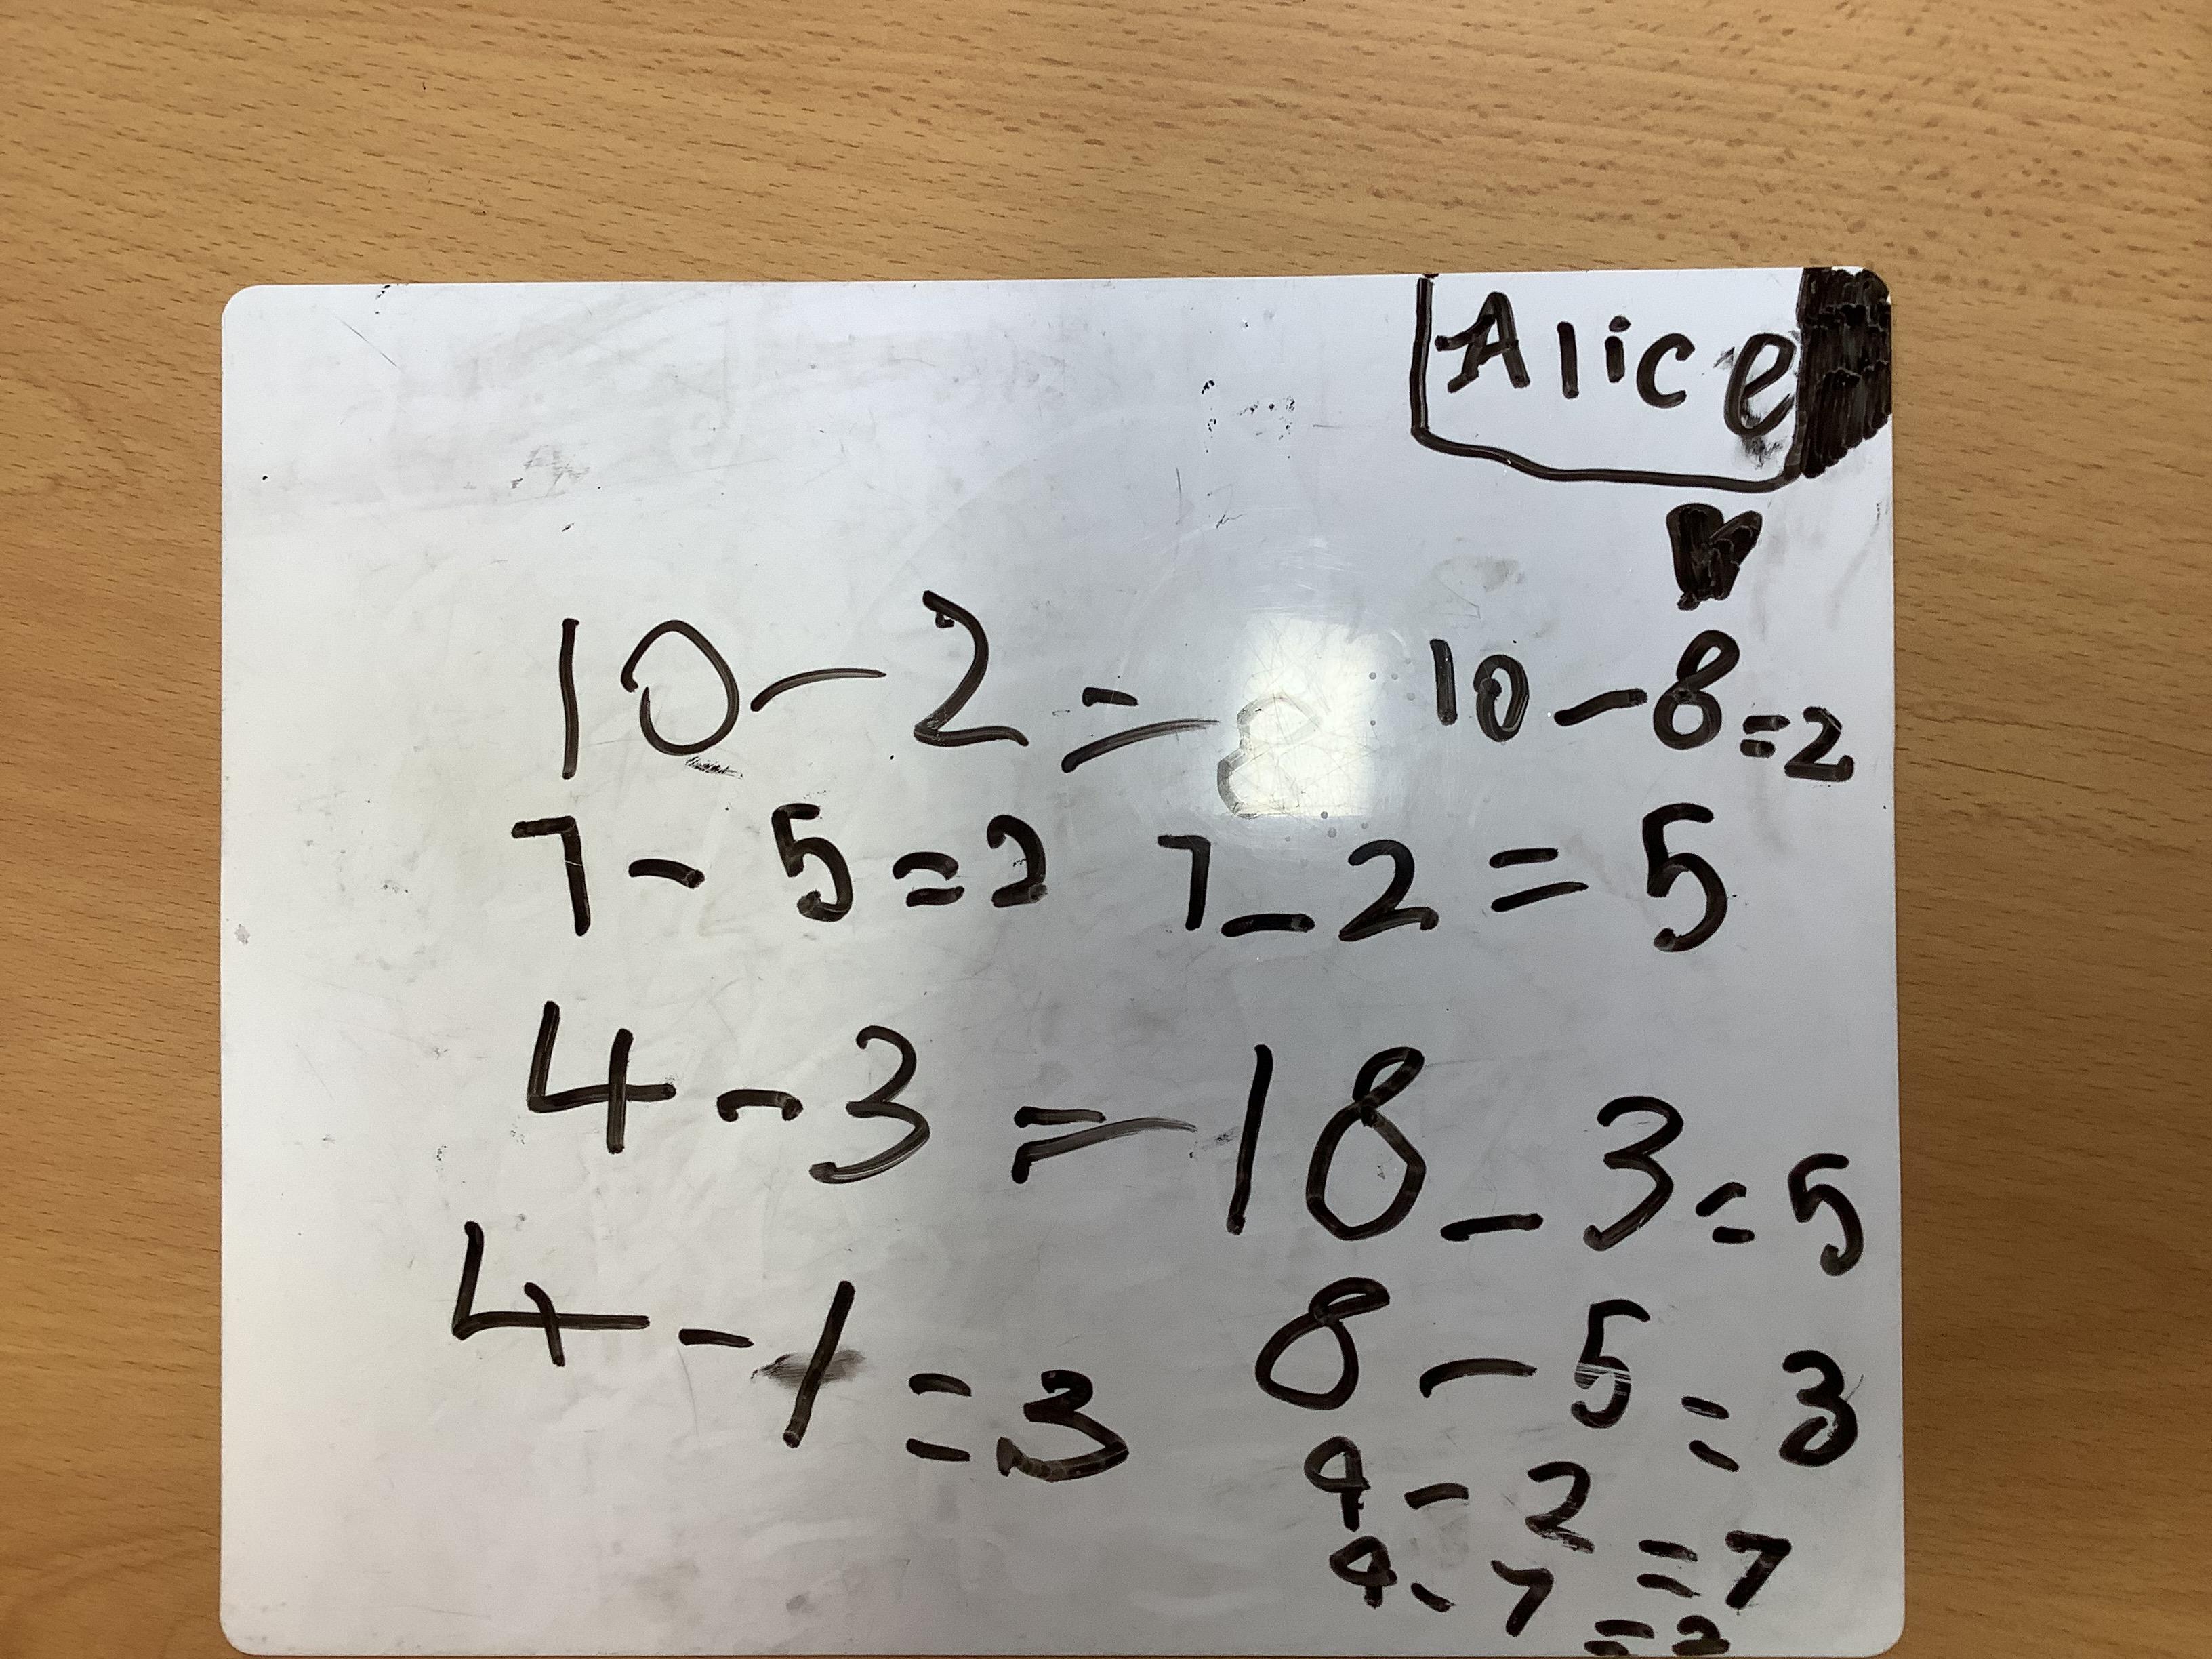 Alice
10 - 2 = 8 10 - 8 = 2
7 - 5 = 2 7 - 2 = 5
4 - 3 = 1 8 - 3 = 5
4 - 1 = 3 8 - 5 = 3
9 - 2 = 7
9 - 7 = 2